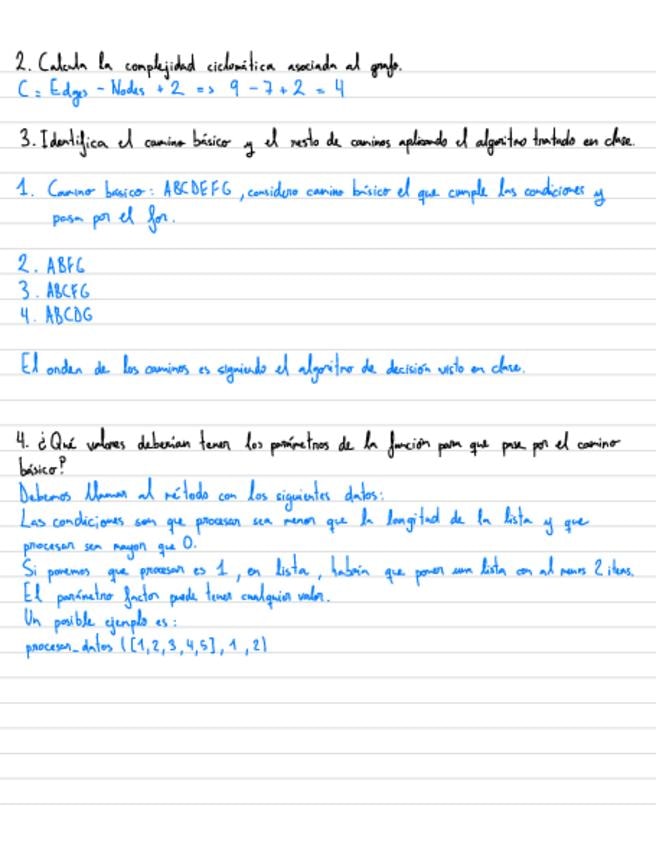 2. Calcula la complejidad ciclomática asociada al grafo.
C = Edges - Nodes + 2 => 9 - 7 + 2 = 4
3. Identifica el camino básico y el resto de caminos aplicando el algoritmo tratado en clase.
1. Camino básico: ABCDEFG, considero camino básico el que cumple las condiciones y
pasa por el for.
2. ABFG
3. ABCFG
4. ABCDG
El orden de los caminos es siguiendo el algoritmo de decisión visto en clase.
4. ¿Qué valores deberían tener los parámetros de la función para que pase por el camino
básico?
Debemos llamar al método con los siguientes datos:
Las condiciones son que procesar sea menor que la longitud de la lista y que
procesar sea mayor que 0.
Si ponemos que procesar es 1, en lista, habría que poner una lista con al menos 2 items.
El parámetro factor puede tener cualquier valor.
Un posible ejemplo es:
procesar_datos ([1,2,3,4,5], 1, 2)